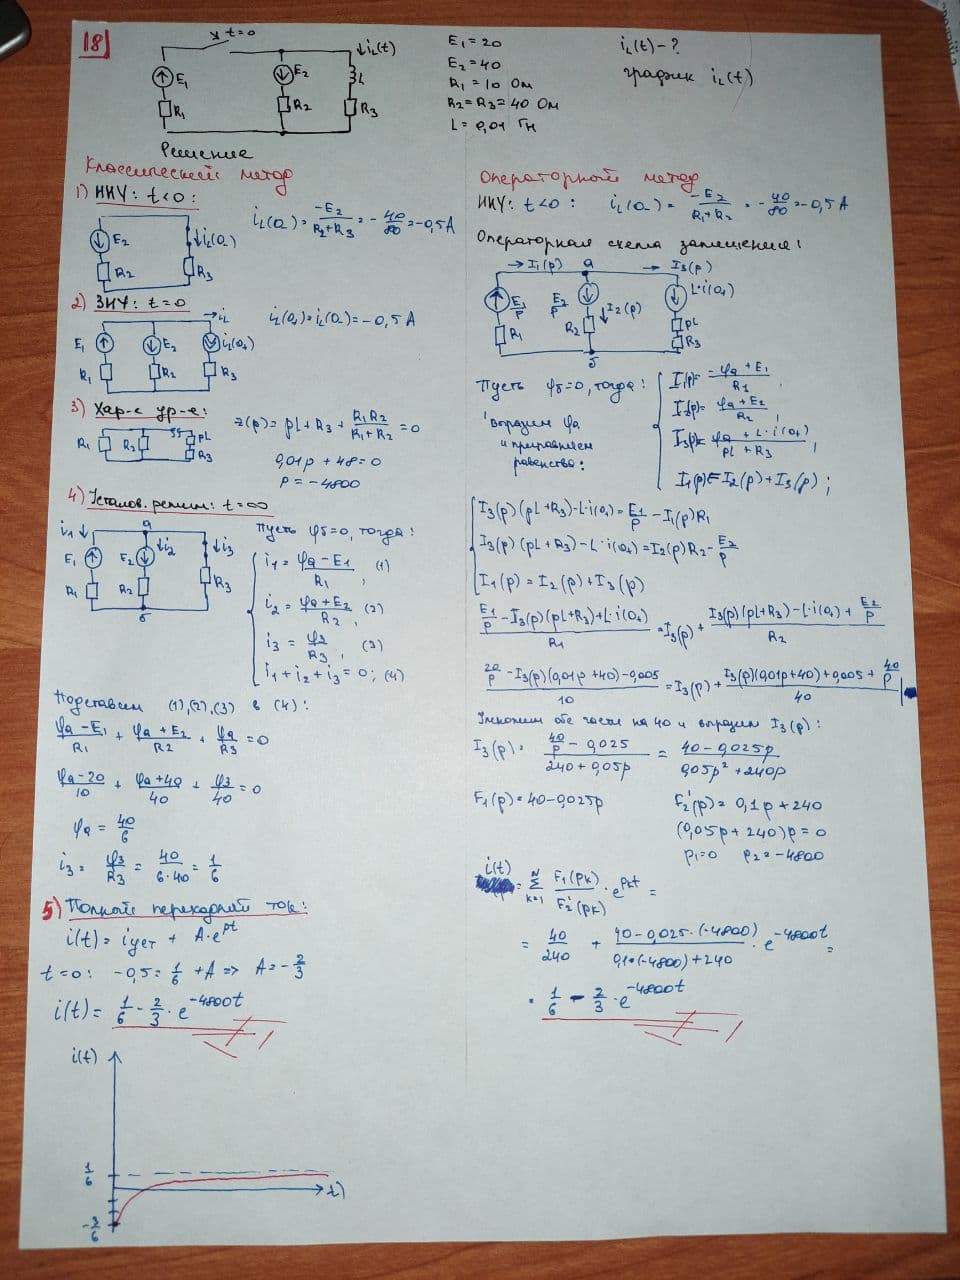 18
t=0
E₁
R₁
E₂
R₂
↓iL(t)
L
R₃
E₁ = 20
E₂ = 40
R₁ = 10 Ом
R₂=R₃= 40 Ом
L = 0,01 Гн
iL(t) - ?
график iL(t)
Решение
Классический метод
1) ННУ: t<0:
E₂
R₂
↓iL(0-)
R₃
iL(0-) = -E₂/(R₂+R₃) = -40/80 = -0,5 A
2) ЗНУ: t=0
→iL
E₁
R₁
E₂
R₂
iL(0+)
R₃
iL(0+) = iL(0-) = -0,5 A
3) Хар-е ур-е:
R₁
R₂
pL
R₃
z(p) = pL + R₃ + R₁R₂/(R₁+R₂) = 0
0,01p + 48 = 0
p = -4800
4) Установ. режим: t=∞
i₁↓
a
E₁
R₁
E₂
R₂
↓i₂
↓i₃
R₃
б
Пусть φб=0, тогда:
i₁ = (φa - E₁)/R₁, (1)
i₂ = (φa + E₂)/R₂, (2)
i₃ = φa/R₃, (3)
i₁ + i₂ + i₃ = 0; (4)
Подставим (1),(2),(3) в (4):
(φa - E₁)/R₁ + (φa + E₂)/R₂ + φa/R₃ = 0
(φa - 20)/10 + (φa + 40)/40 + φa/40 = 0
φa = 40/6
i₃ = φa/R₃ = 40/(6·40) = 1/6
5) Полный переходный ток:
i(t) = iуст + A·e^pt
t=0: -0,5 = 1/6 + A => A = -2/3
i(t) = 1/6 - 2/3 · e^-4800t
i(t)
1/6
-3/6
t
Операторный метод
ННУ: t<0: iL(0-) = -E₂/(R₁+R₂) = -40/80 = -0,5 A
Операторная схема замещения:
→I₁(p)
a
→I₃(p)
E₁/p
R₁
E₂/p
R₂
↓I₂(p)
L·i(0+)
pL
R₃
б
Пусть φб=0, тогда:
I₁(p) = (φa + E₁)/R₁
I₂(p) = (φa + E₂)/R₂,
I₃(p) = (φa + L·i(0+))/(pL + R₃),
I₁(p) = I₂(p) + I₃(p);
Выразим φa
и приравняем
равенства:
I₃(p)(pL+R₃) - L·i(0+) = E₁/p - I₁(p)R₁
I₃(p)(pL+R₃) - L·i(0+) = I₂(p)R₂ - E₂/p
I₁(p) = I₂(p) + I₃(p)
(E₁/p - I₃(p)(pL+R₃) + L·i(0+))/R₁ = I₃(p) + (I₃(p)(pL+R₃) - L·i(0+) + E₂/p)/R₂
(20/p - I₃(p)(0,01p + 40) - 0,005)/10 = I₃(p) + (I₃(p)(0,01p+40) + 0,005 + 40/p)/40
Умножим обе части на 40 и выразим I₃(p):
I₃(p) = (40/p - 0,025)/(240 + 0,05p) = (40 - 0,025p)/(0,05p² + 240p)
F₁(p) = 40 - 0,025p
F₂'(p) = 0,1p + 240
(0,05p + 240)p = 0
p₁=0 p₂ = -4800
i(t) = Σ(k=1…N) F₁(pk)/F₂'(pk) · e^pkt =
= 40/240 + (40 - 0,025·(-4800))/(0,1·(-4800) + 240) · e^-4800t =
= 1/6 - 2/3 · e^-4800t